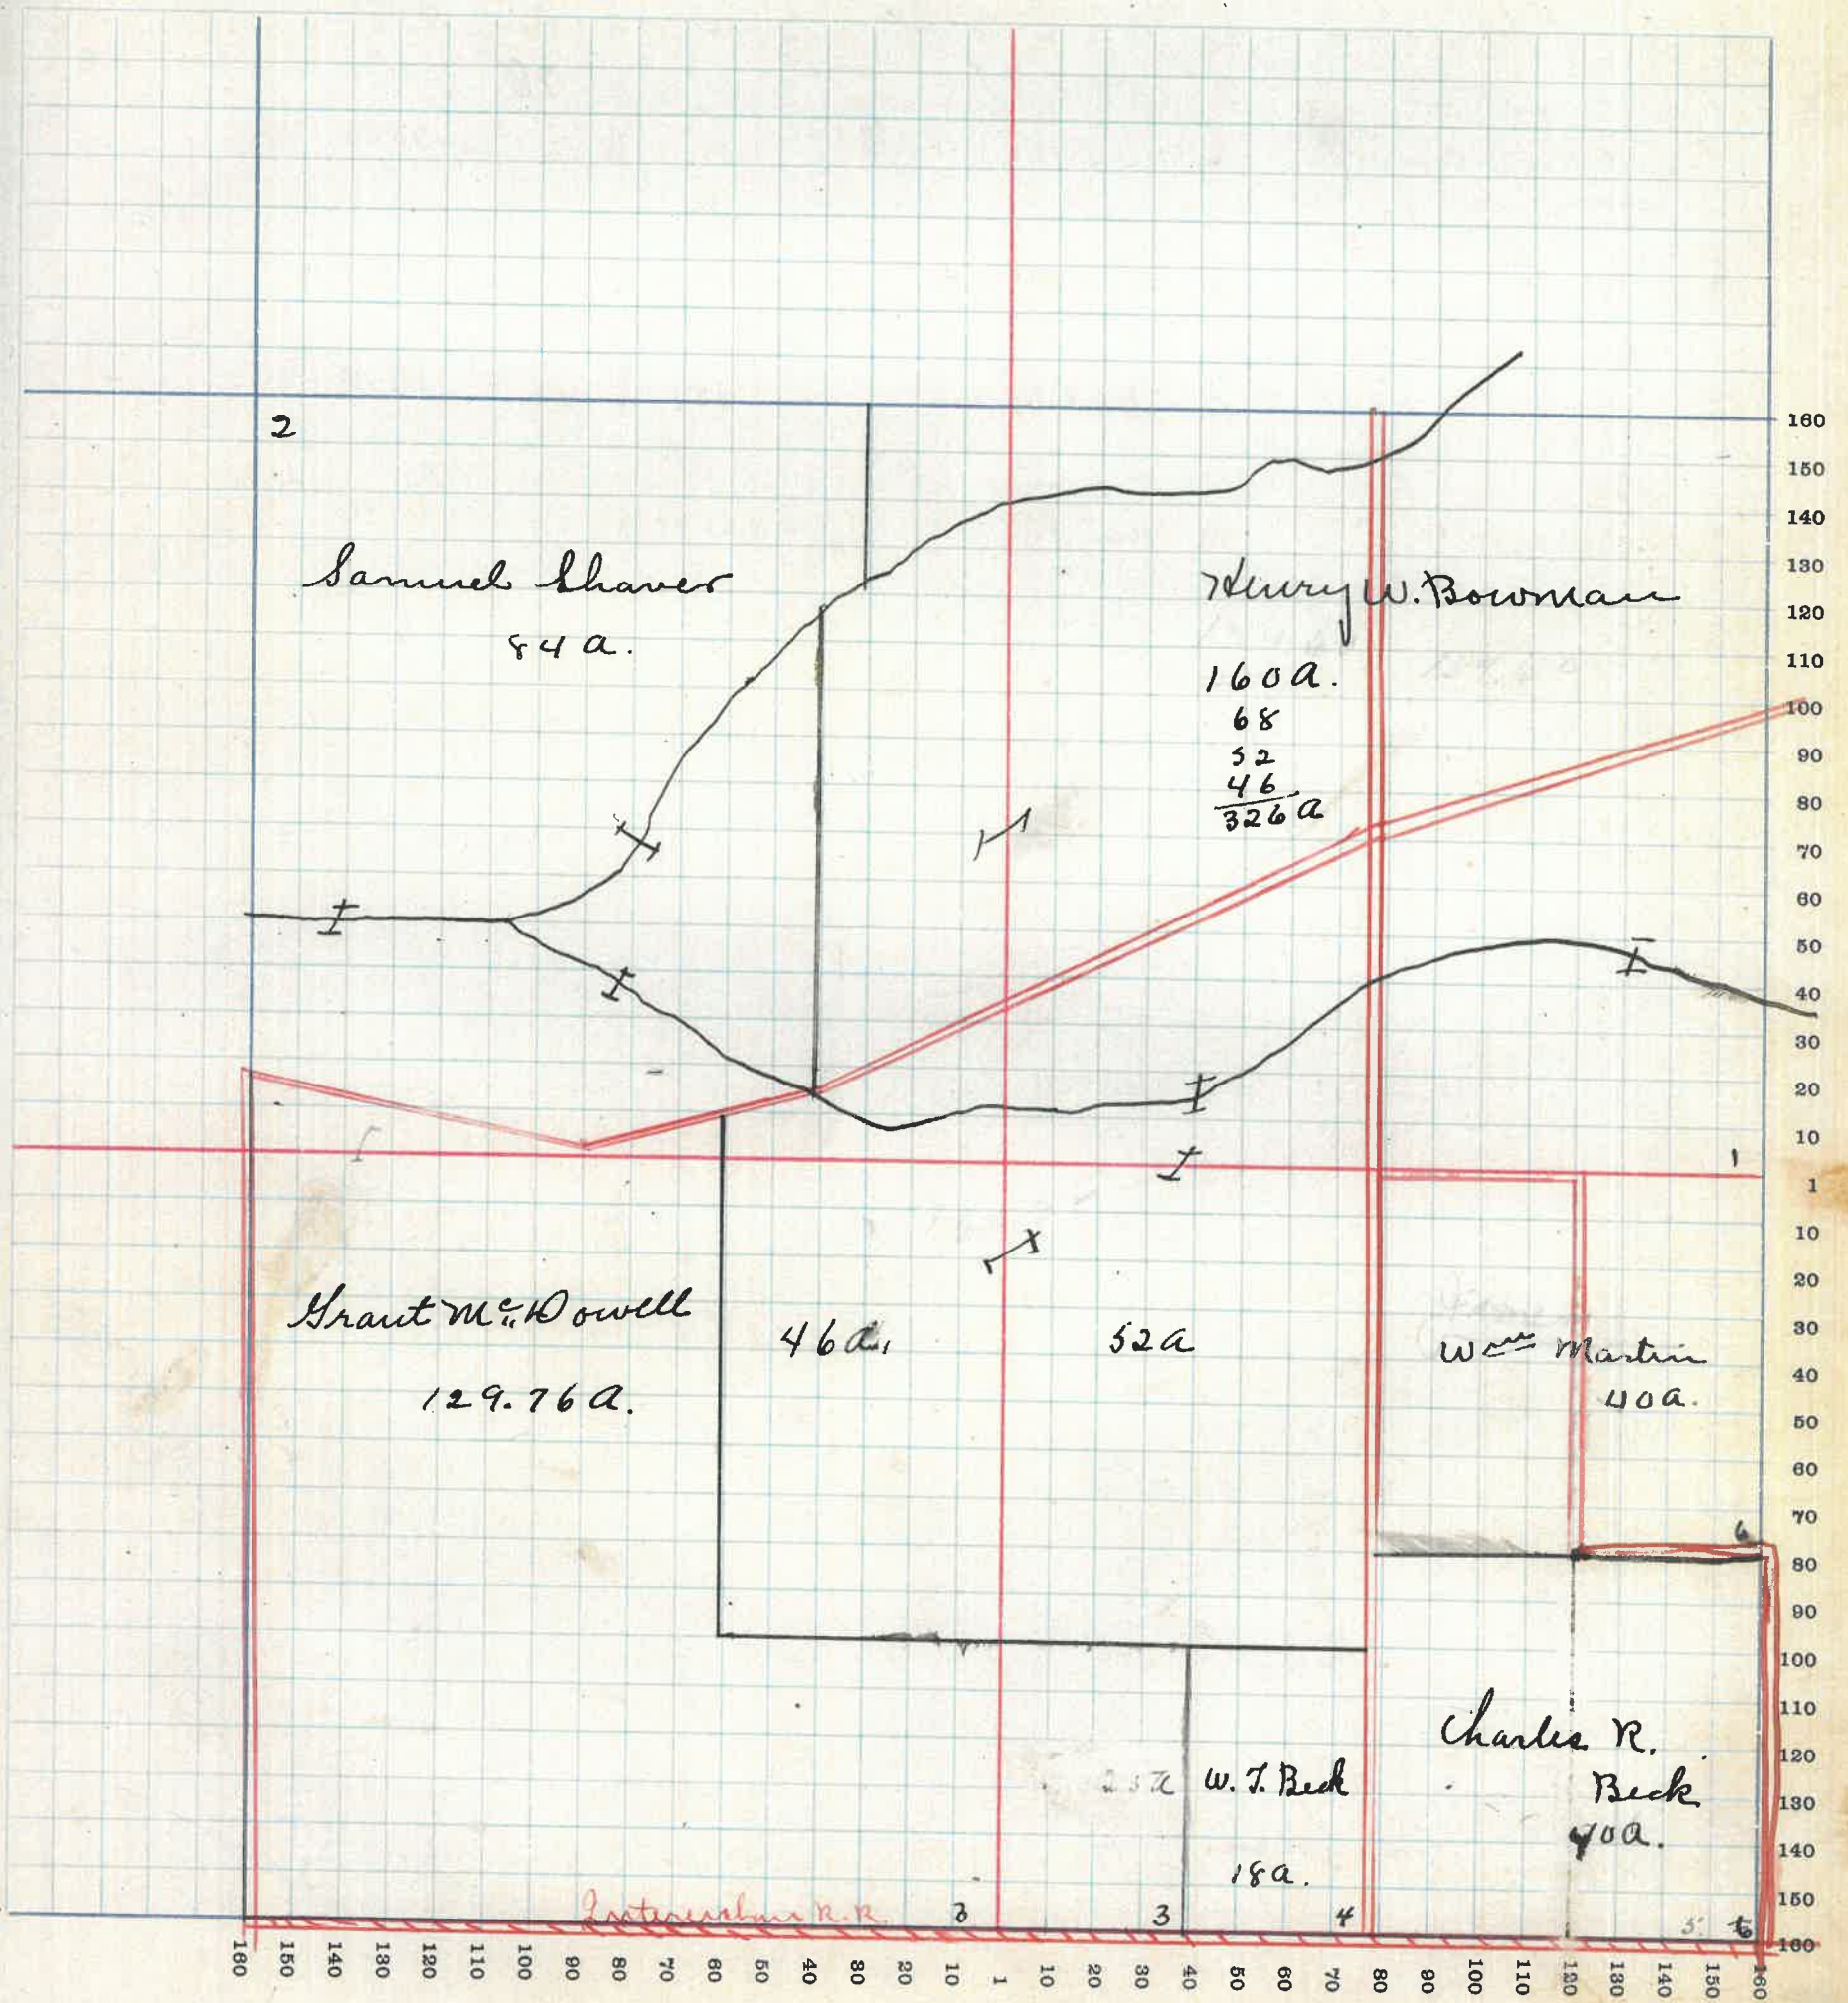 2
Samuel Shaver
84 a.
Henry W. Bowman
160 a.
68
52
46
326 a
1
Grant Mc. Dowell
129.76 a.
46 a.
52 a
Wm Martin
40 a.
6
W. T. Beck
18 a.
Charles R.
Beck
40 a.
Interurban R.R.
3
4
5
160
150
140
130
120
110
100
90
80
70
60
50
40
30
20
10
1
10
20
30
40
50
60
70
80
90
100
110
120
130
140
150
160
160 150 140 130 120 110 100 90 80 70 60 50 40 30 20 10 1 10 20 30 40 50 60 70 80 90 100 110 120 130 140 150 160